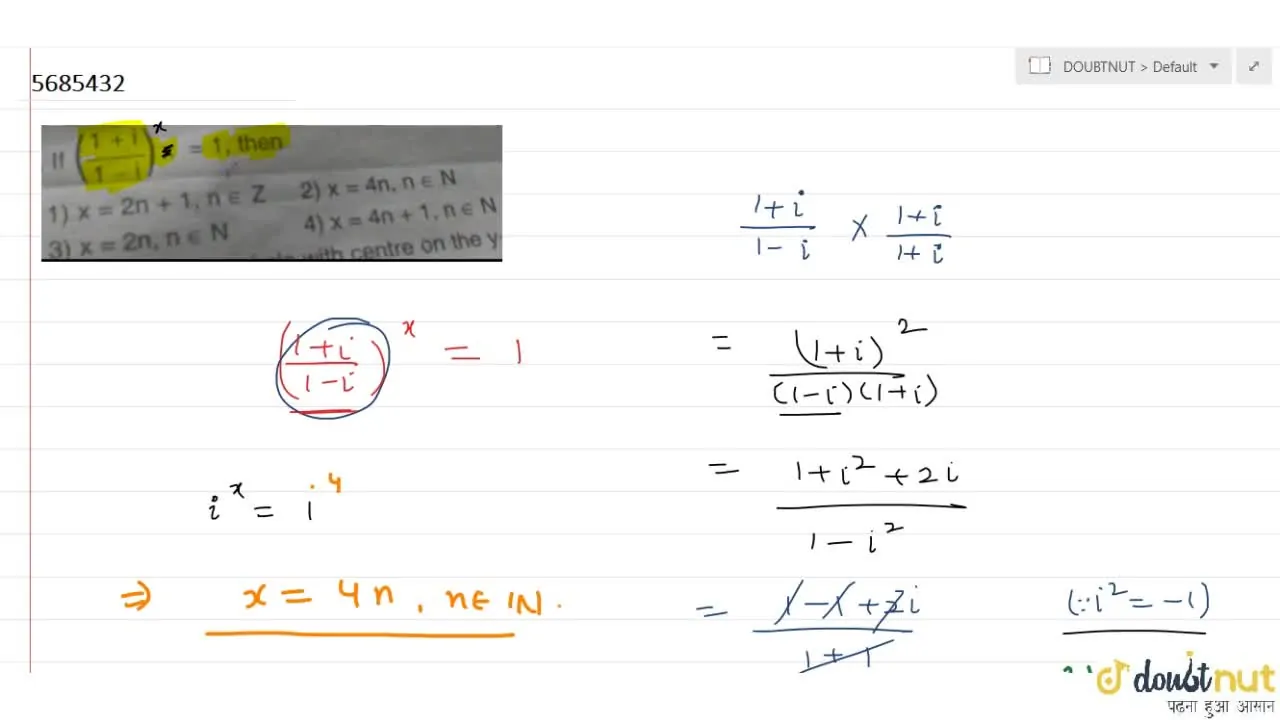 5685432
DOUBTNUT > Default
If (1 + i / 1 - i)^x = 1, then
1) x = 2n + 1, n ∈ Z 2) x = 4n, n ∈ N
3) x = 2n, n ∈ N 4) x = 4n + 1, n ∈ N
with centre on the y
(1+i / 1-i)^x = 1
i^x = i^4
⇒ x = 4n, n ∈ IN.
1+i / 1-i × 1+i / 1+i
= (1+i)^2 / (1-i)(1+i)
= 1+i^2+2i / 1-i^2
= 1-1+2i / 1+1 (∵ i^2 = -1)
doubtnut
पढ़ना हुआ आसान